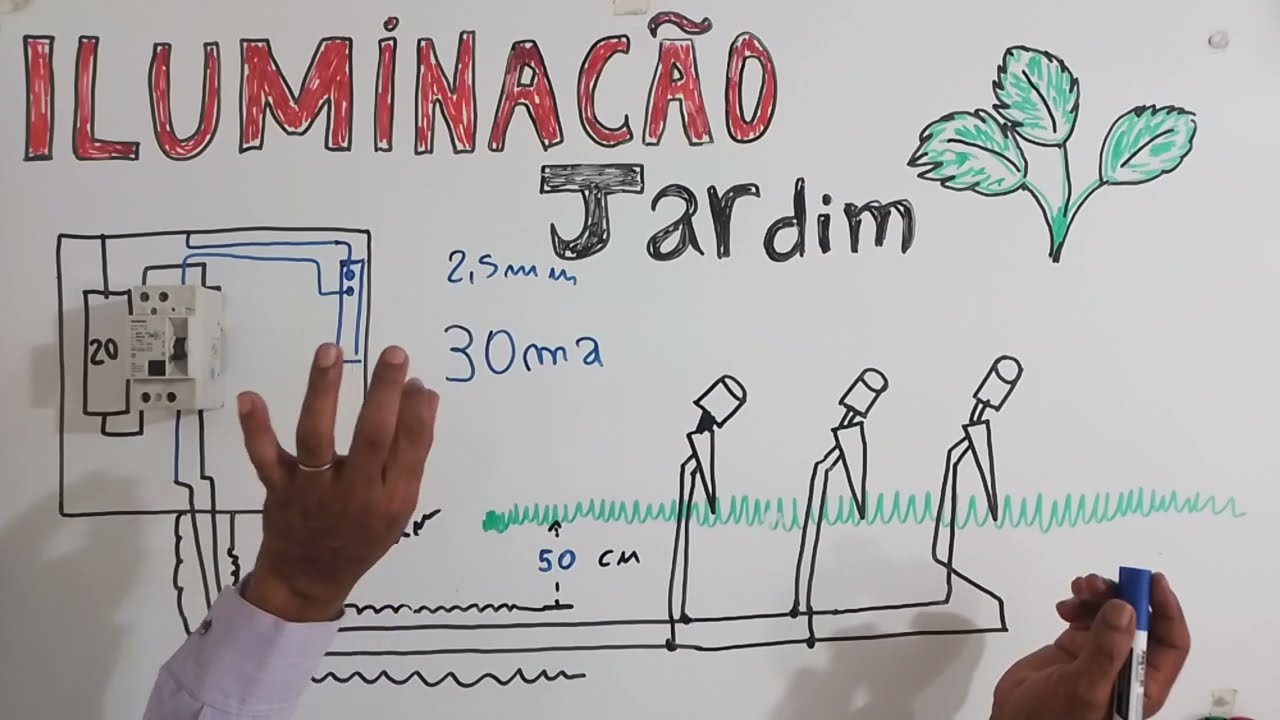 ILUMINAÇÃO
Jardim
2,5mm
30ma
20
50 CM